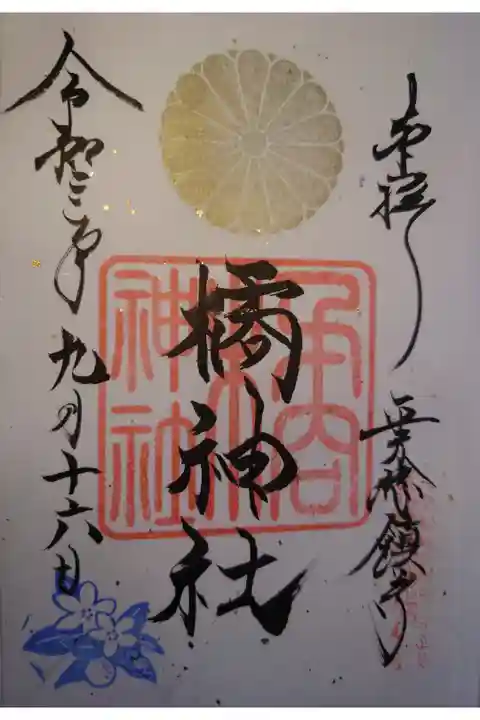 奉拝
鎮守
橘神社
神社
令和三年九月十六日